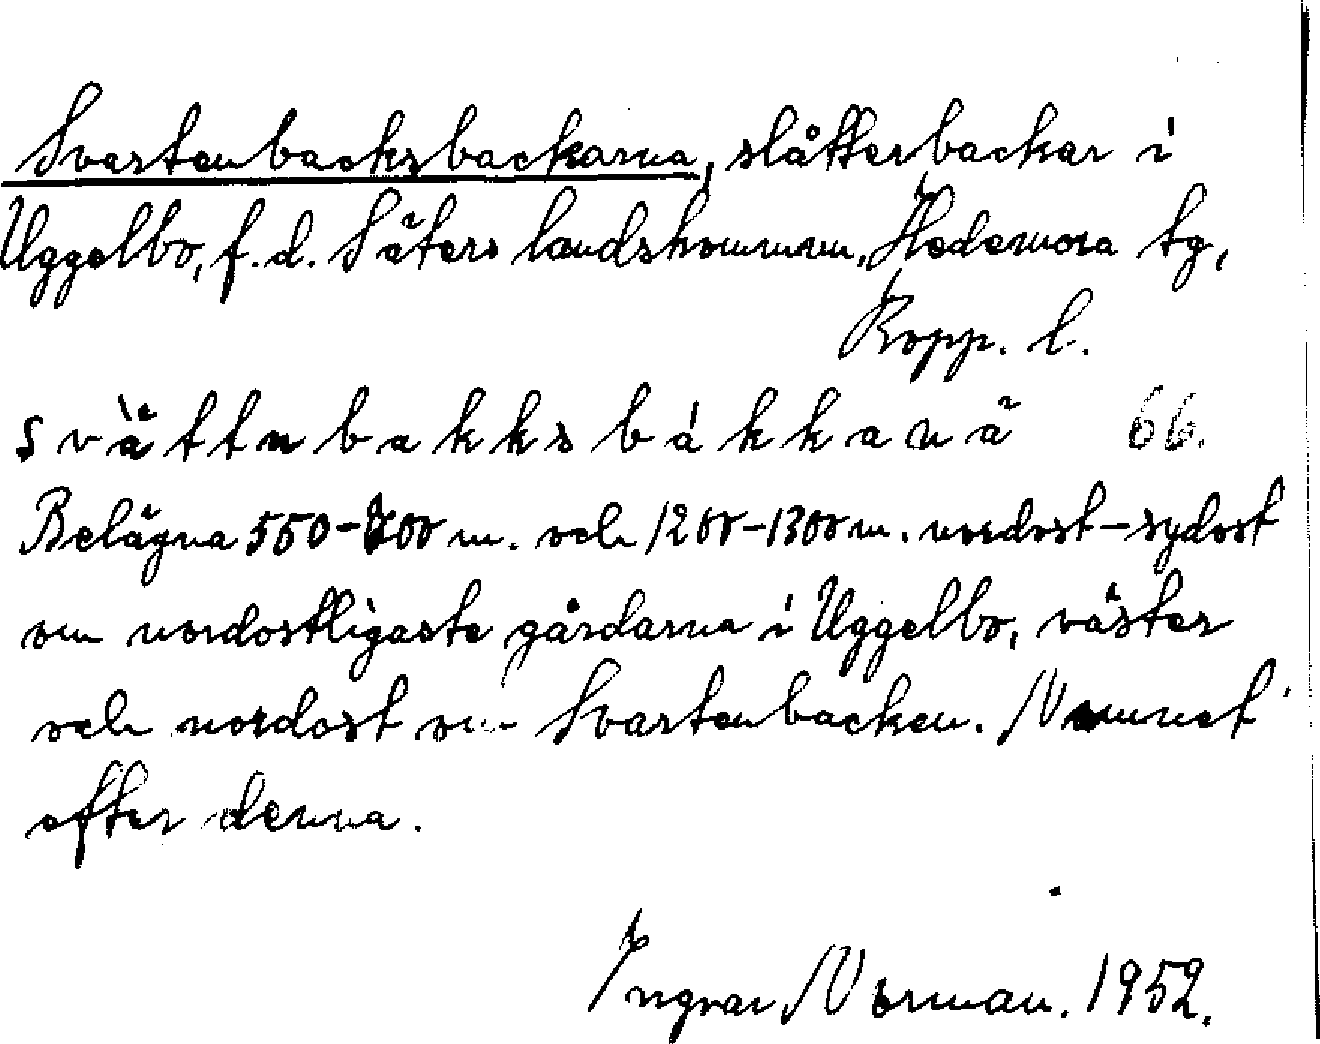 Svartenbacksbackarna, slåtterbackar i
Uggelbo, f.d. Säters landskommun, Hedemora tg,
Kopp. l.
svä̀ttnbakksbákkanä 66.
Belägna 550-700 m. och 1200-1300 m. nordost-sydost
om nordostligaste gårdarna i Uggelbo, väster
och nordost om Svartenbacken. Namnet
efter denna.
Ingvar Norman. 1952.